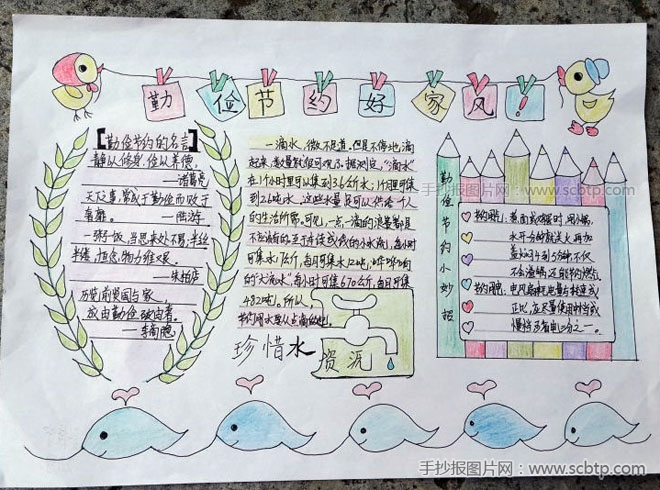 勤俭节约好家风!
【勤俭节约的名言】
静以修身,俭以养德。
——诸葛亮
天下之事,常成于勤俭而败于
奢靡。——陆游
一粥一饭,当思来处不易,半丝
半缕,恒念物力维艰。
——朱柏庐
历览前贤国与家,
成由勤俭破由奢。
——李商隐
一滴水,微不足道。但是不停地滴
起来,数量就很可观了。据测定,"滴水"
在1个小时里可以集到3.6公斤水;1个月里可集
到2.6吨水。这些水量,足可以供给一个人
的生活所需。可见,一点一滴的浪费都是
不应该有的。至于连续成线的小水流,每小时
可集水17公斤,每月可集水12吨,哗哗响
的"大流水",每小时可集670公斤,每月可集
482吨!。所以
节约用水要从点滴做起。
珍惜水资源
勤俭节约小妙招
节约用煤:煮面或煨汤时,用小锅,
水开后
盖焖
不会
节约用电:电风扇耗电量与转速成
正比,应尽量使用中
慢档
手抄报图片网:www.scbtp.com
手抄报图片网:www.scbtp.com